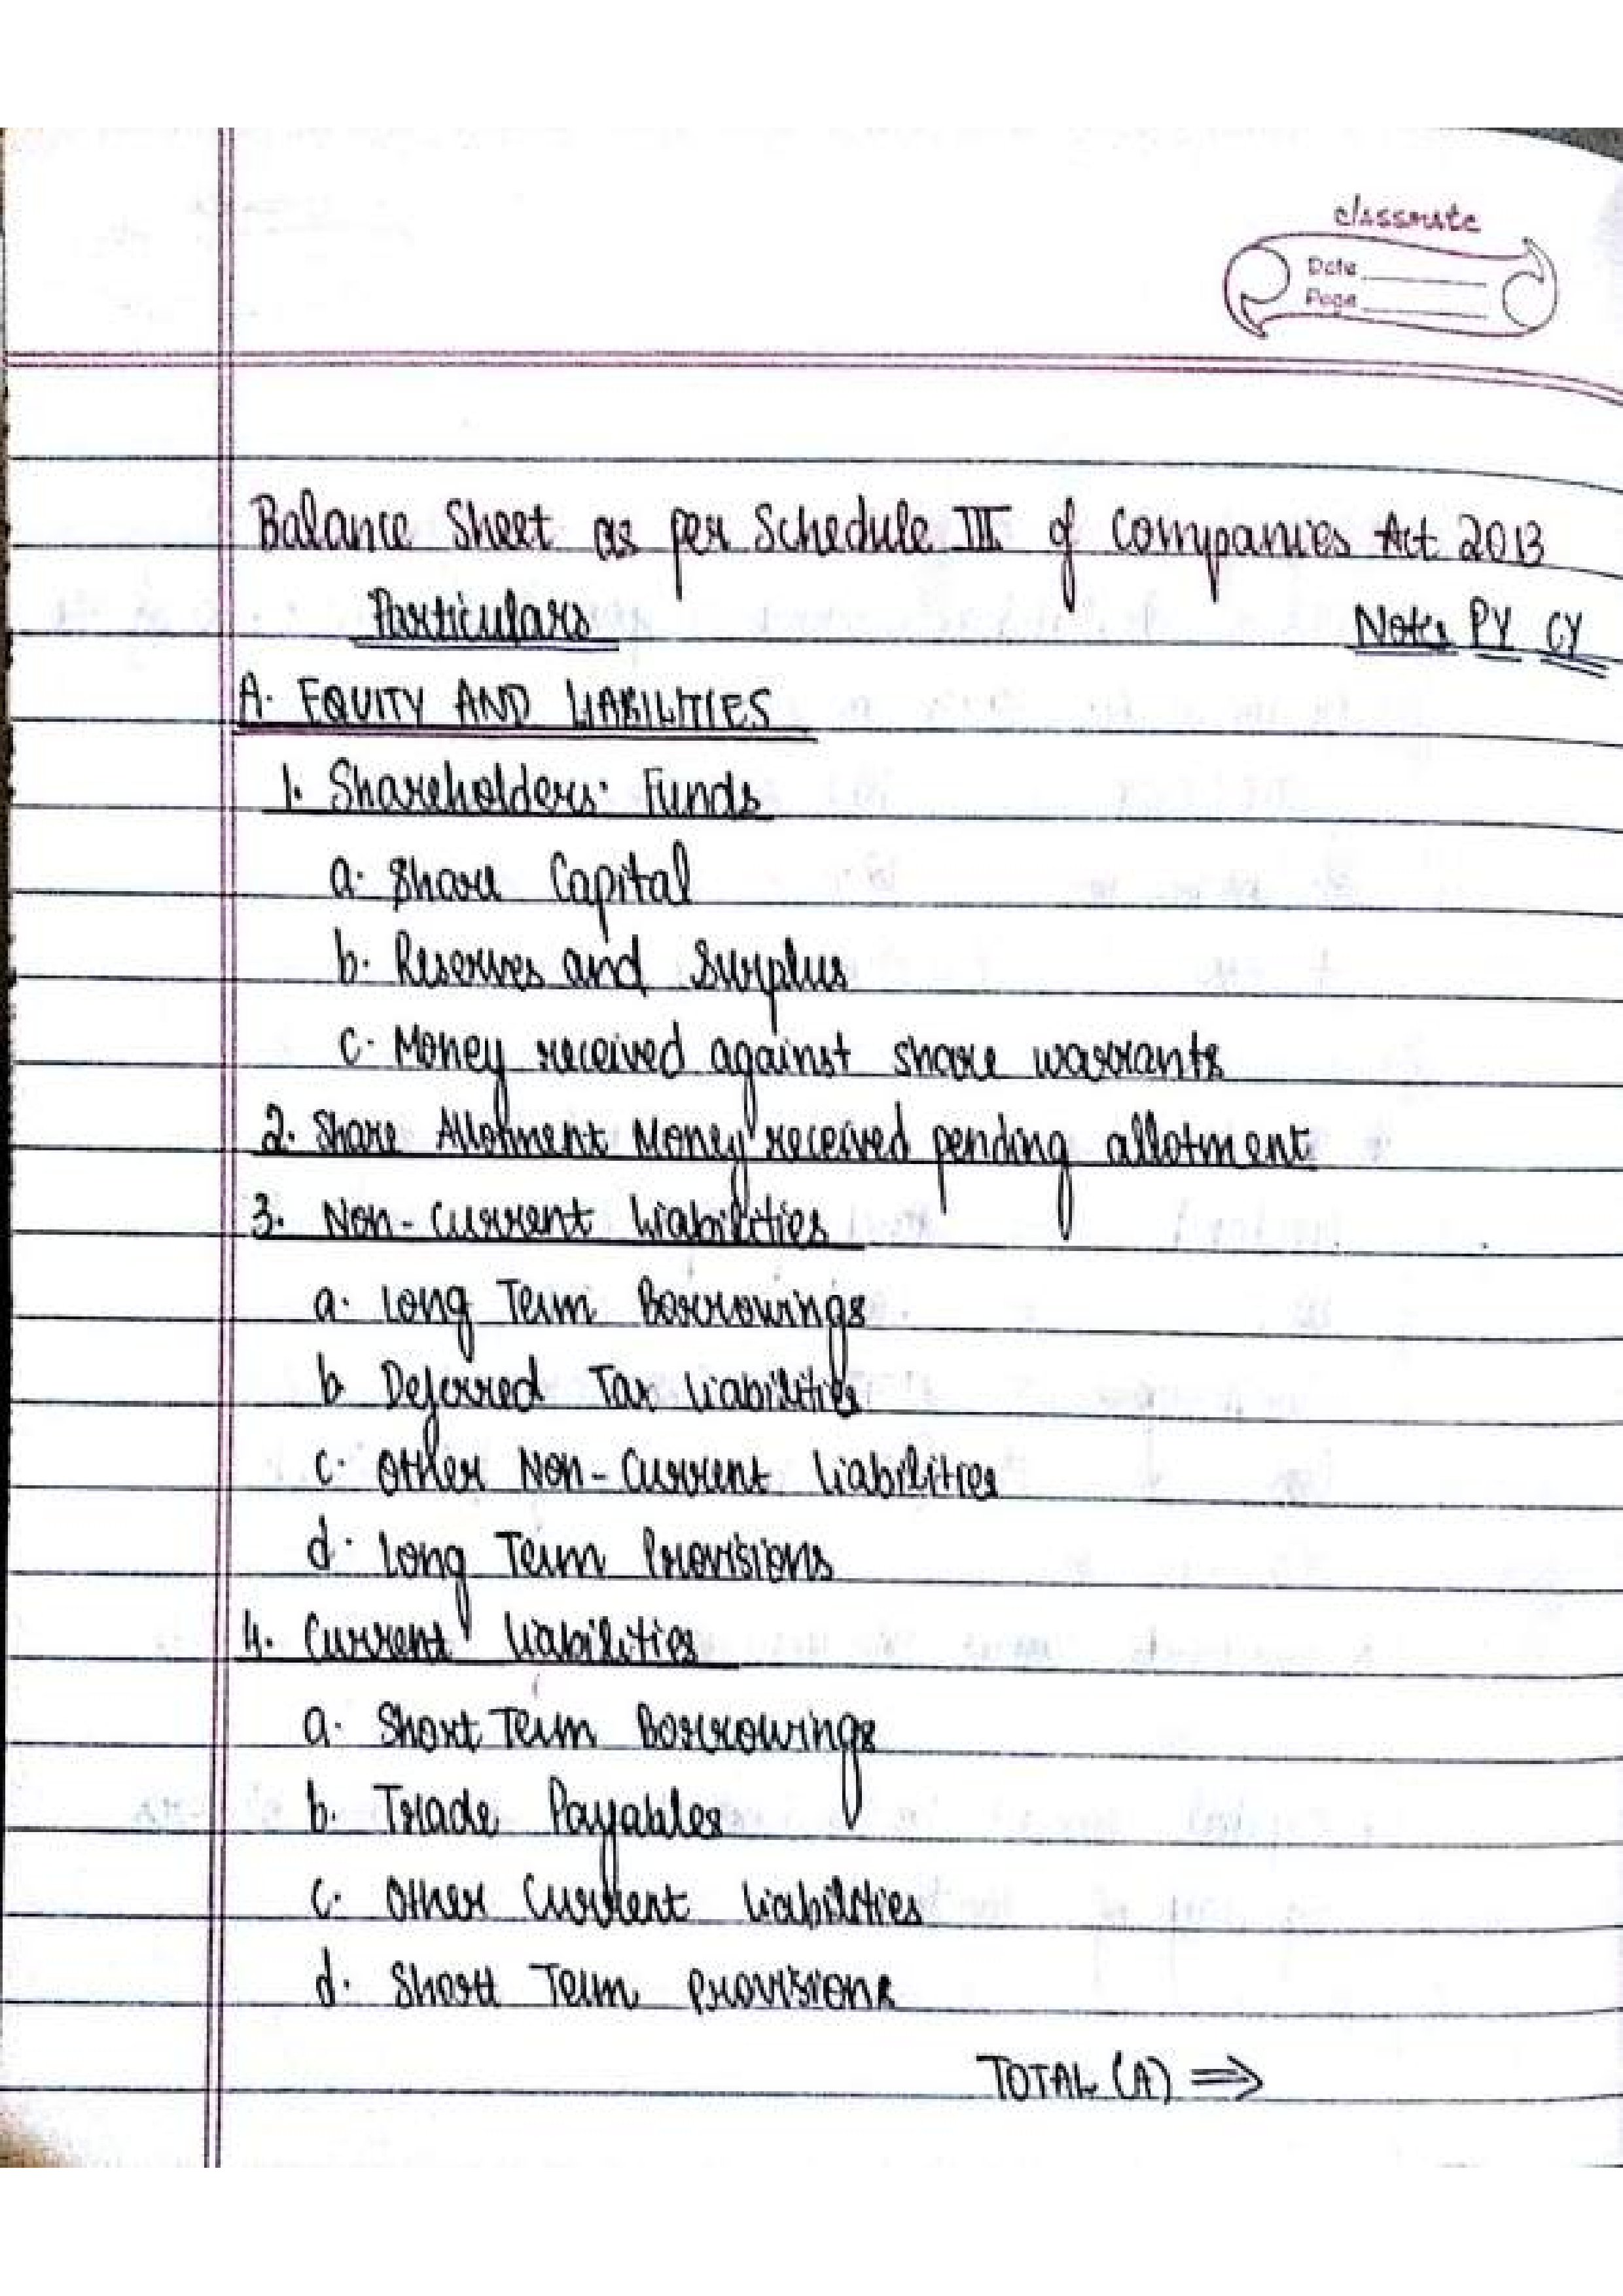 classmate
Date
Page
Balance Sheet as per Schedule III of Companies Act 2013
Particulars Notes PY CY
A. EQUITY AND LIABILITIES
1. Shareholders' Funds
a. Share Capital
b. Reserves and Surplus
c. Money received against share warrants
2. Share Allotment Money received pending allotment
3. Non-Current Liabilities
a. Long Term Borrowings
b Deferred Tax Liabilities
c. Other Non-Current Liabilities
d. Long Term Provisions
4. Current Liabilities
a. Short Term Borrowings
b. Trade Payables
c. Other Current Liabilities
d. Short Term Provisions
TOTAL (A) ⇒